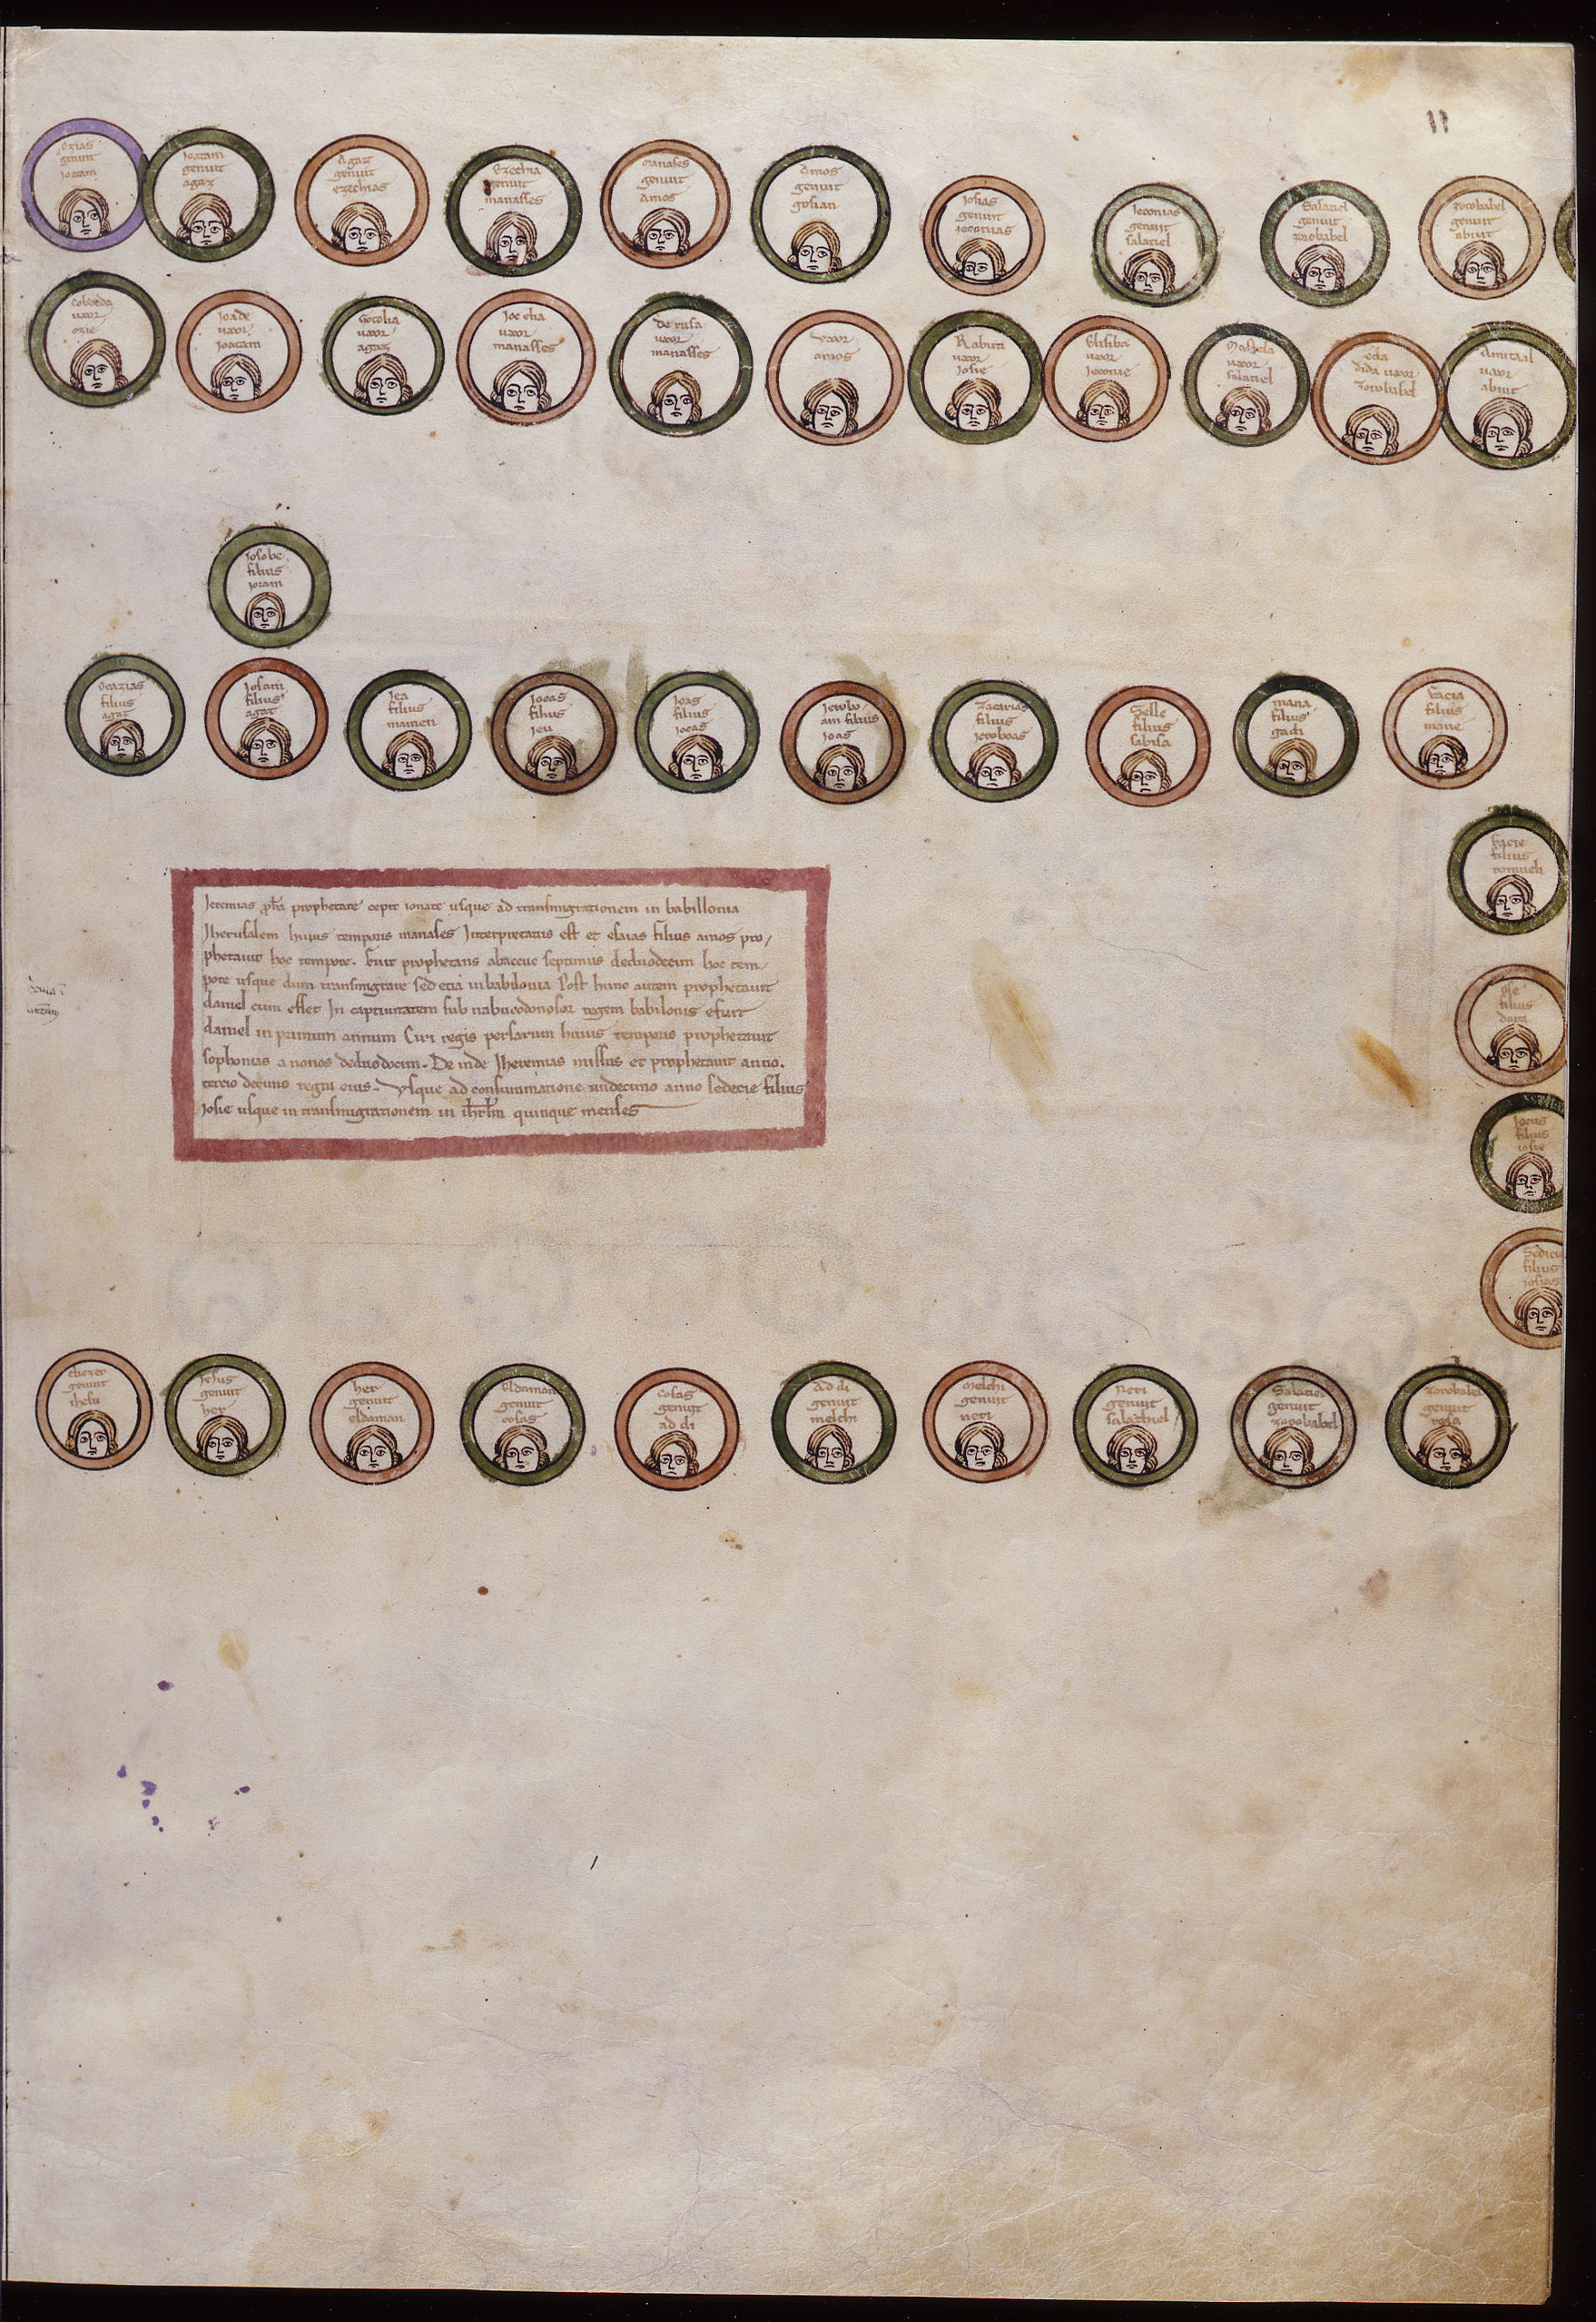 11
Ozias
genuit
joatam
Joatam
genuit
agaz
Agaz
genuit
ezechias
Ezechia
genuit
manasses
Manases
genuit
Amos
Amos
genuit
gosian
Josias
genuit
jeconias
Jeconias
genuit
salatiel
Salatiel
genuit
zorobabel
Zorobabel
genuit
abiut
uxor
ozie
Joade
uxor
joatam
Gotolia
uxor
agaz
Joc elia
uxor
manasses
de rusa
uxor
manasses
Uxor
amos
Rabuti
uxor
Josie
Elisiba
uxor
Jeconie
uxor
salatiel
eda
dida uxor
zorobabel
Amitaal
uxor
abiut
Josobe
filius
joram
Ocazias
filius
agat
Josam
filius
agat
Jea
filius
mamen
Jocas
filius
jeu
Joas
filius
jocas
Jerobo
am filius
joas
Zacarias
filius
jeroboas
Selle
filius
sabisa
mana
filius
gadi
facia
filius
mane
facie
filius
romueli
ose
filius
filius
josie
filius
josias
Jeremias propheta prophetare cepit ionate usque ad transmigrationem in babillonia
Jherusalem huius temporis manases Interpretatus est et esaias filius amos pro/
phetauit hoc tempore. fuit prophetans abaccuc septimus deduodecim hoc tem/
pore usque dum transmigrare sed etia in babilonia Post hunc autem prophetauit
daniel cum esset In captiuitatem sub nabucodonosor regem babilonis efuit
daniel in primum annum Ciri regis persarum huius temporis prophetauit
sophonias a nonos deduodocim. De inde Jheremias missus et prophetauit anno.
tercio decimo regni eius. Usque ad consummatione undecimo anno sedecie filius
josie usque in transmigrationem in ihrlm quinque menses
eliezer
genuit
ihesu
Jesus
genuit
her
her
genuit
eldaman
Eldaman
genuit
cosas
Cosas
genuit
ad di
Ad di
genuit
melchi
Melchi
genuit
neri
Neri
genuit
salathiel
Salatiel
genuit
zorobabel
Zorobabel
genuit
resa